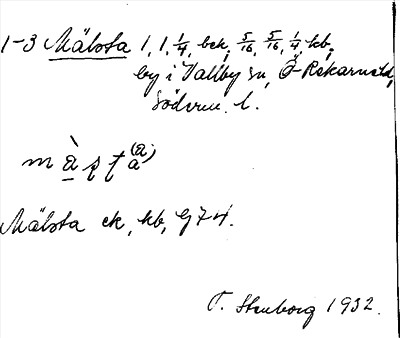 1-3 Mälsta 1, 1, 1/4, bck, 5/16, 5/16, 1/4, kb,
by i Vallby sn, Ö-Rekarne hd,
Söderm. l.
Mälsta ek, kb, G 74.
T. Stenborg 1932.